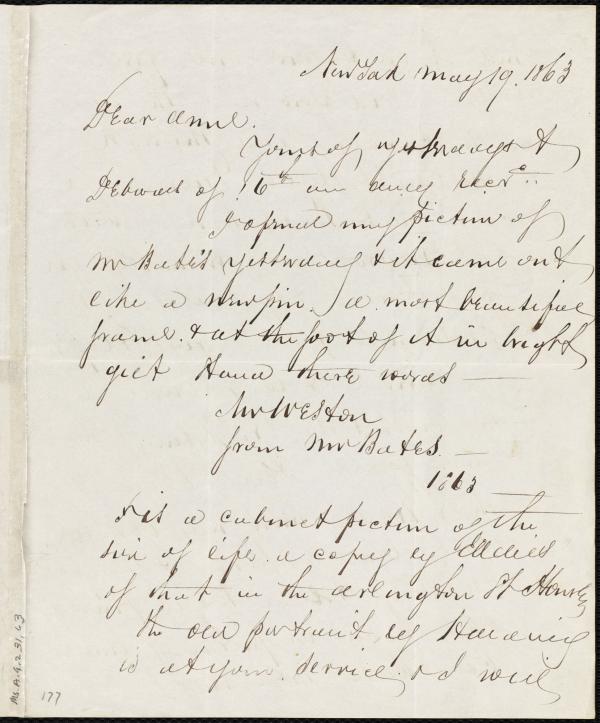 New York May 19. 1863
Dear Anne.
Yours of yesterday &
Deborah's of 16th are duly recd..
I opened my picture of
Mr Bates yesterday & it came out
like a new pin. a most beautiful
frame. & at the foot of it in bright
gilt I found these words —
Mr Weston
from Mr Bates. —
1863 —
It is a cabinet picture of the
size of life. a copy by
of that in the Arlington St House,
the old portrait by Harding
is at your service. & I will
Ms. A.9.2.31, 63
177